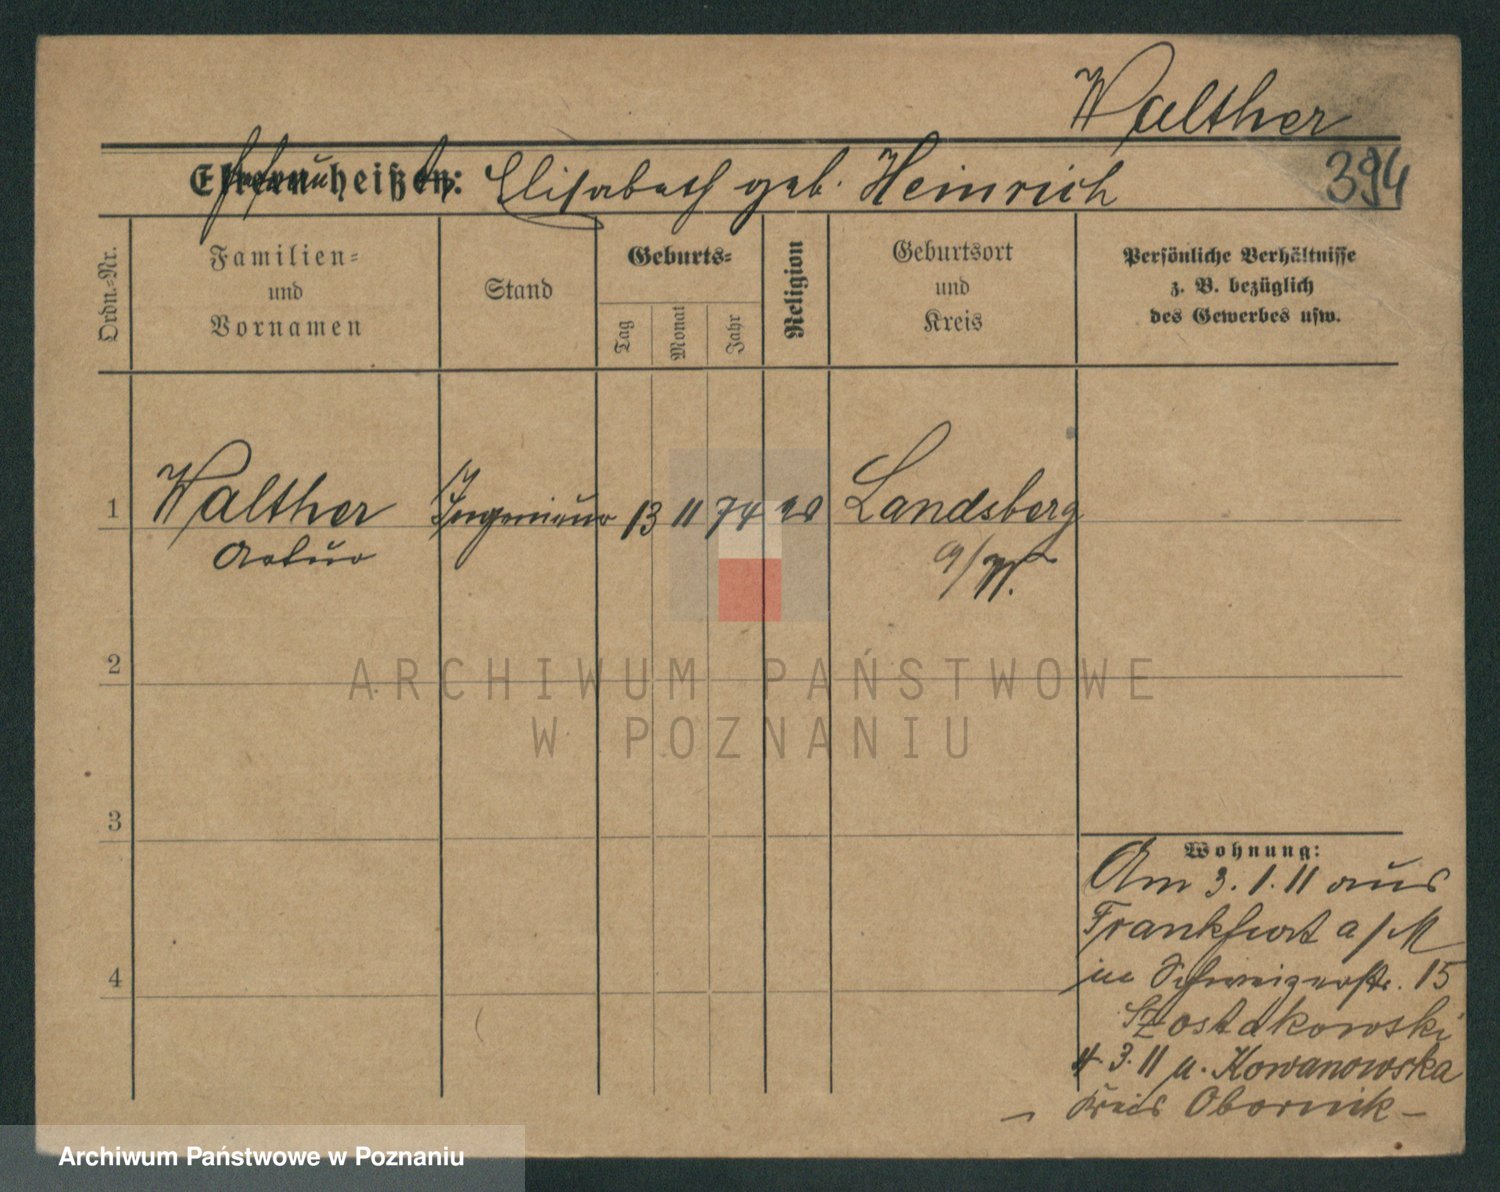 Walther
394
Ehefrau heißt: Elisabeth geb. Heinrich
Ordn.=Nr.
Familien=
und
Vornamen
Stand
Geburts=
Tag
Monat
Jahr
Religion
Geburtsort
und
Kreis
Persönliche Verhältnisse
z. B. bezüglich
des Gewerbes usw.
1
Walther Ingenieur 13 11 74 Landsberg
Artur a/W.
2
ARCHIWUM PAŃSTWOWE
W POZNANIU
3
4
Wohnung:
Am 3. 1. 11 aus
Frankfurt a/M
in Schweizerstr. 15
Szostakowski
4. 3. 11 n. Kowanowska
Kreis Obornik –
Archiwum Państwowe w Poznaniu